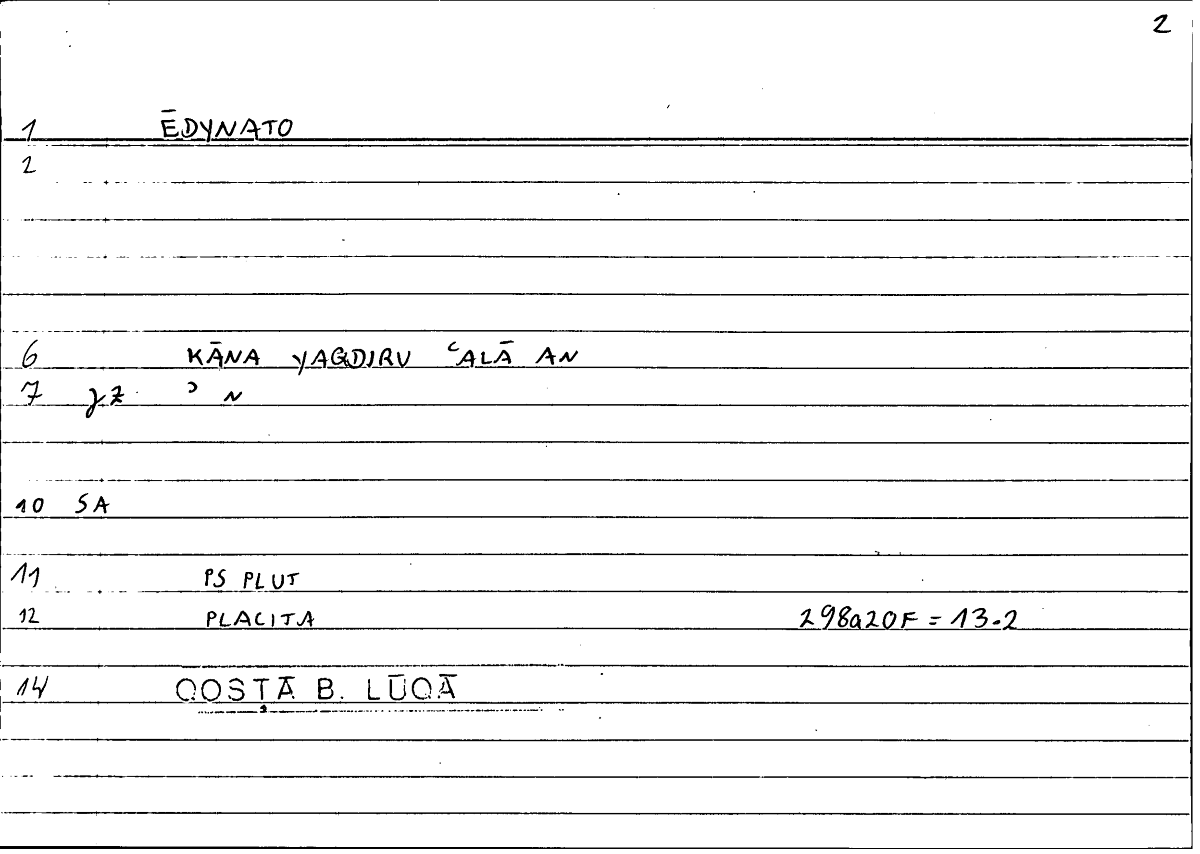 2
1 ĒDYNATO
2
6 KĀNA YAQDIRU ʿALĀ AN
7 ʾ N
10 SA
11 PS PLUT
12 PLACITA 298a20F = 13.2
14 QOSṬĀ B. LŪQĀ